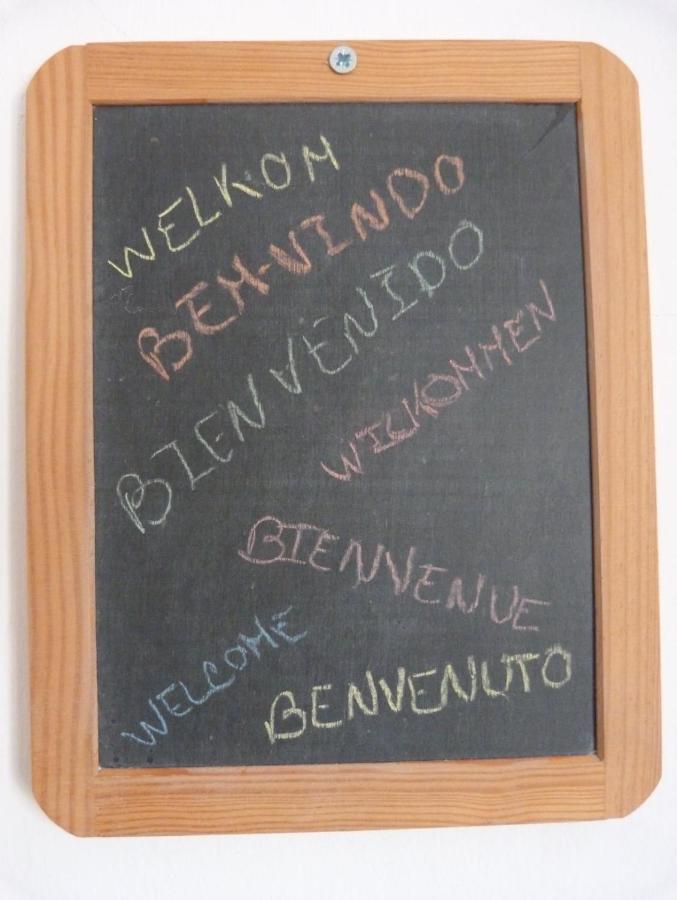 WELKOM
BEM-VINDO
BIENVENIDO
WILKOMMEN
BIENVENUE
WELCOME
BENVENUTO